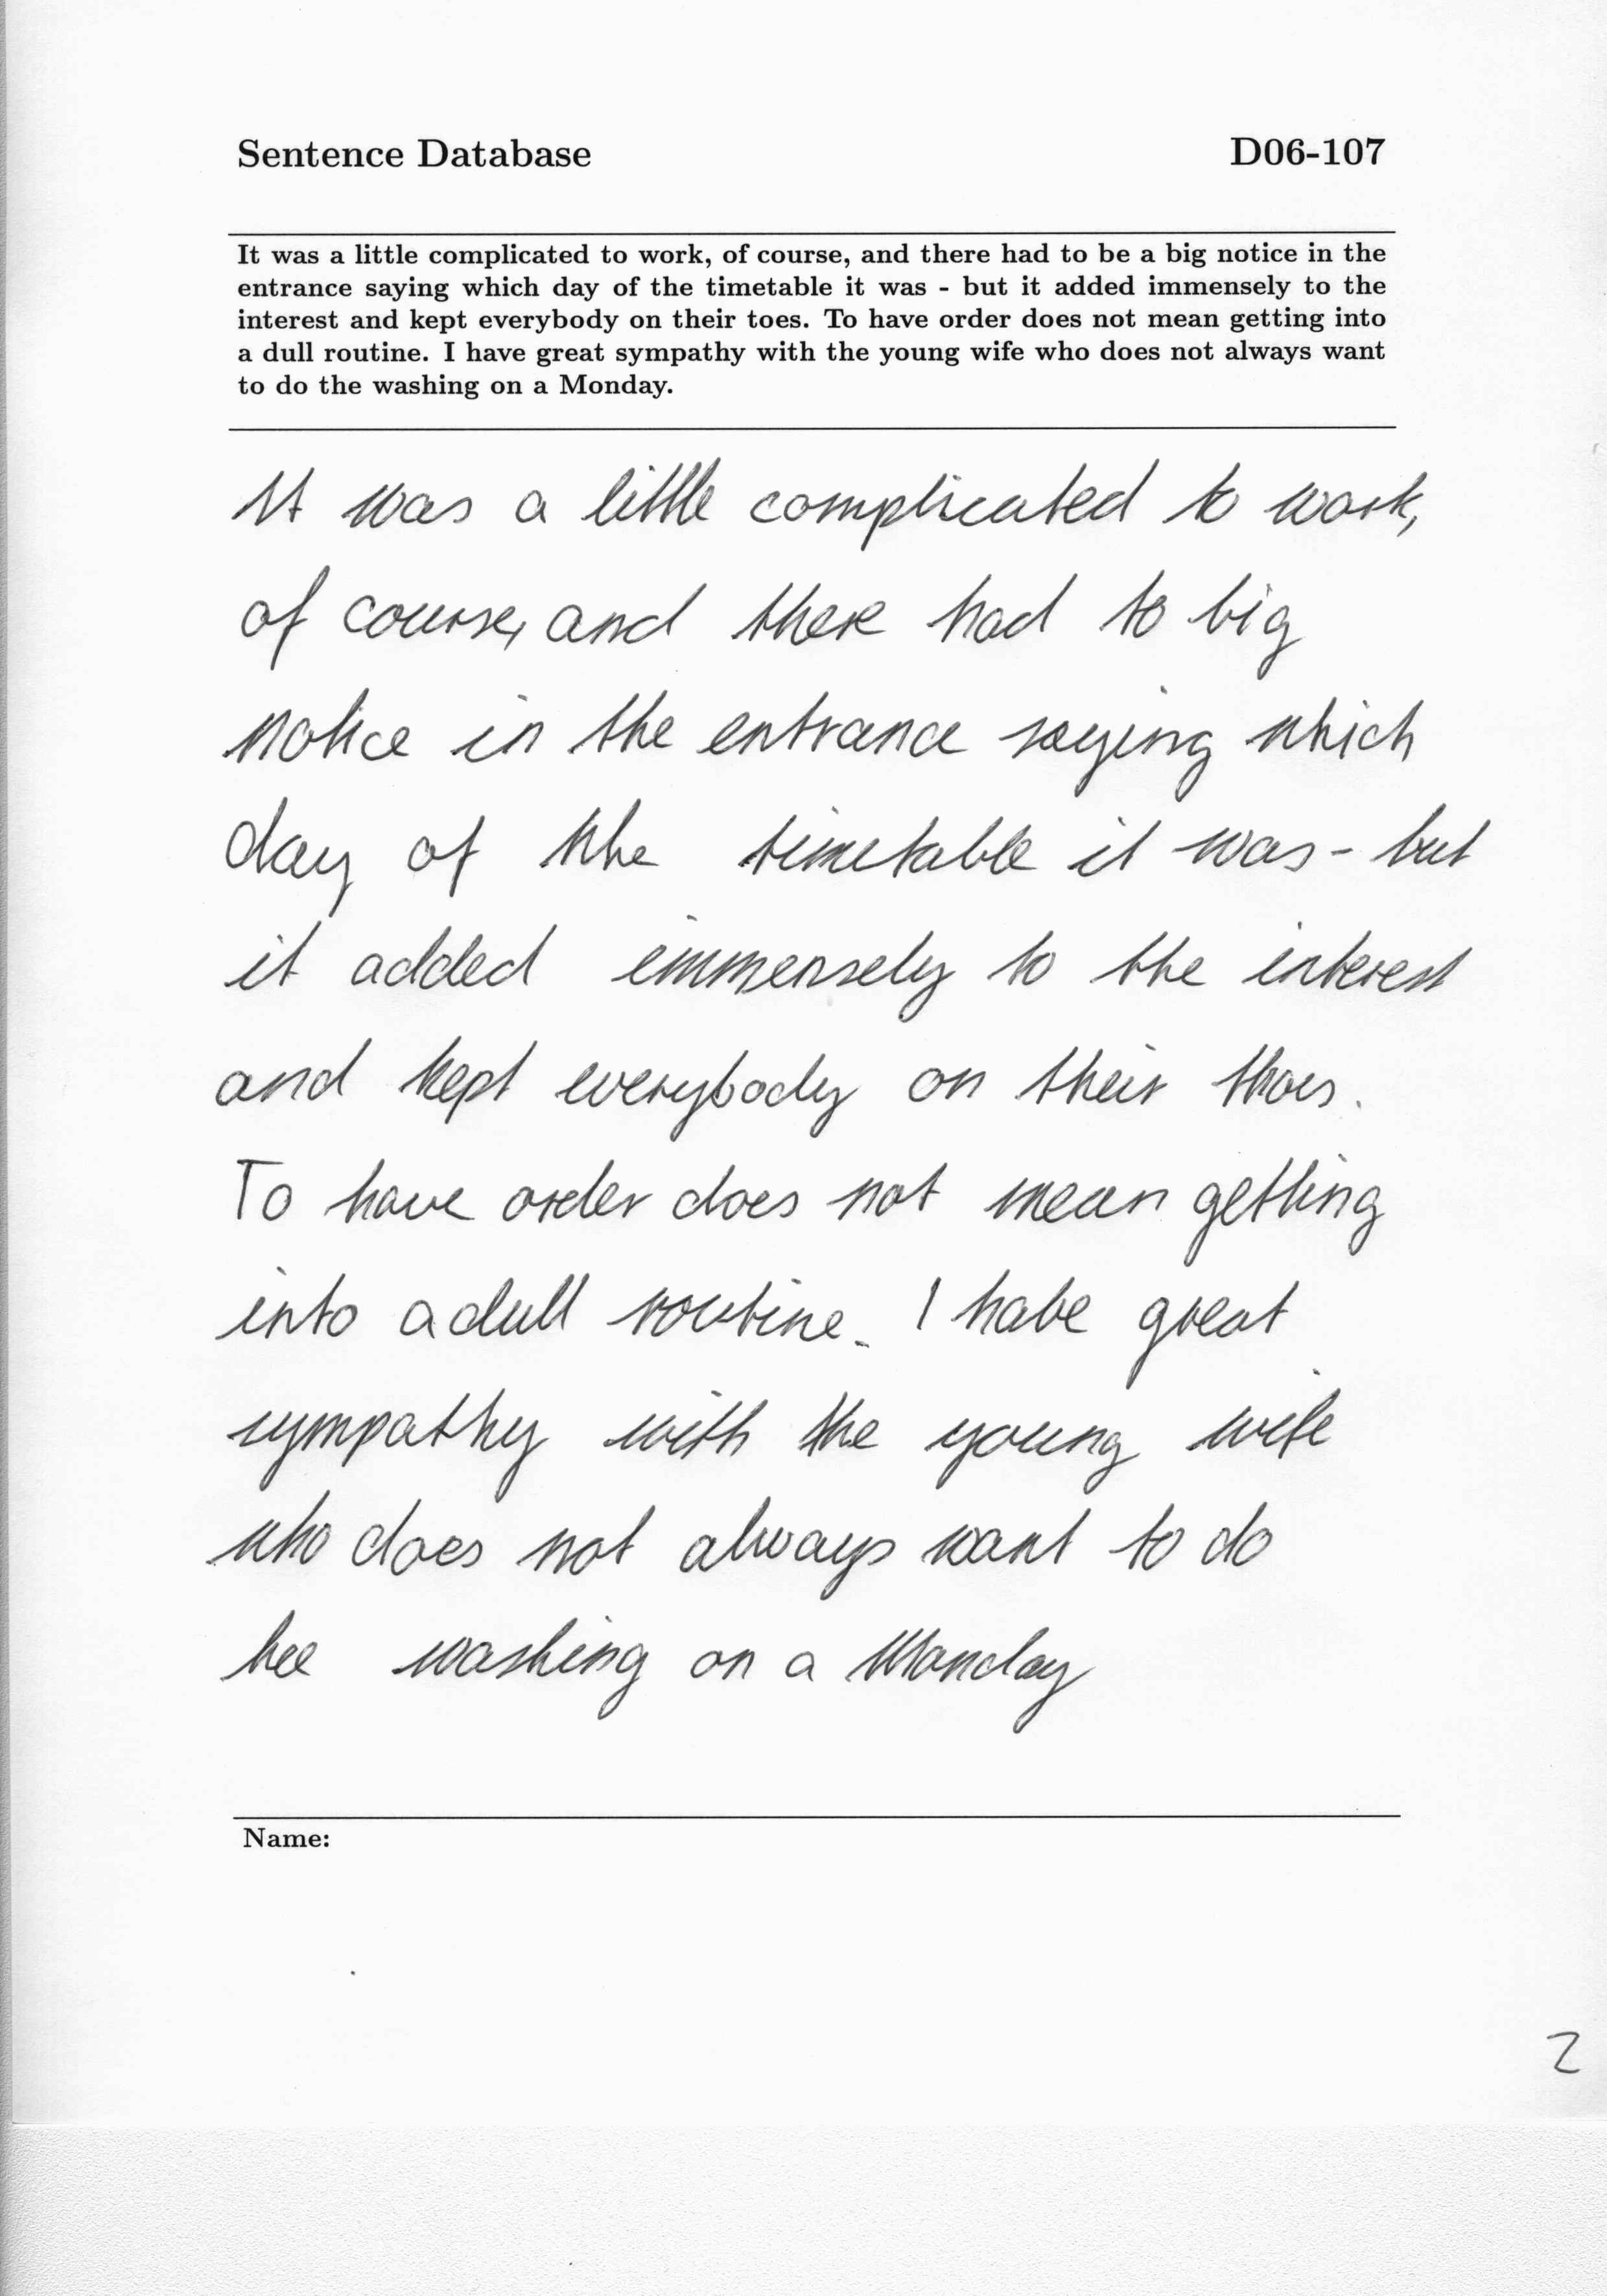 Sentence Database D06-107
It was a little complicated to work, of course, and there had to be a big notice in the
entrance saying which day of the timetable it was - but it added immensely to the
interest and kept everybody on their toes. To have order does not mean getting into
a dull routine. I have great sympathy with the young wife who does not always want
to do the washing on a Monday.
It was a little complicated to work,
of course, and there had to big
notice in the entrance saying which
day of the timetable it was - but
it added immensely to the interest
and kept everybody on their thoes.
To have order does not mean getting
into a dull routine. I habe great
sympathy with the young wife
who does not always want to do
hee washing on a Monday
Name:
2